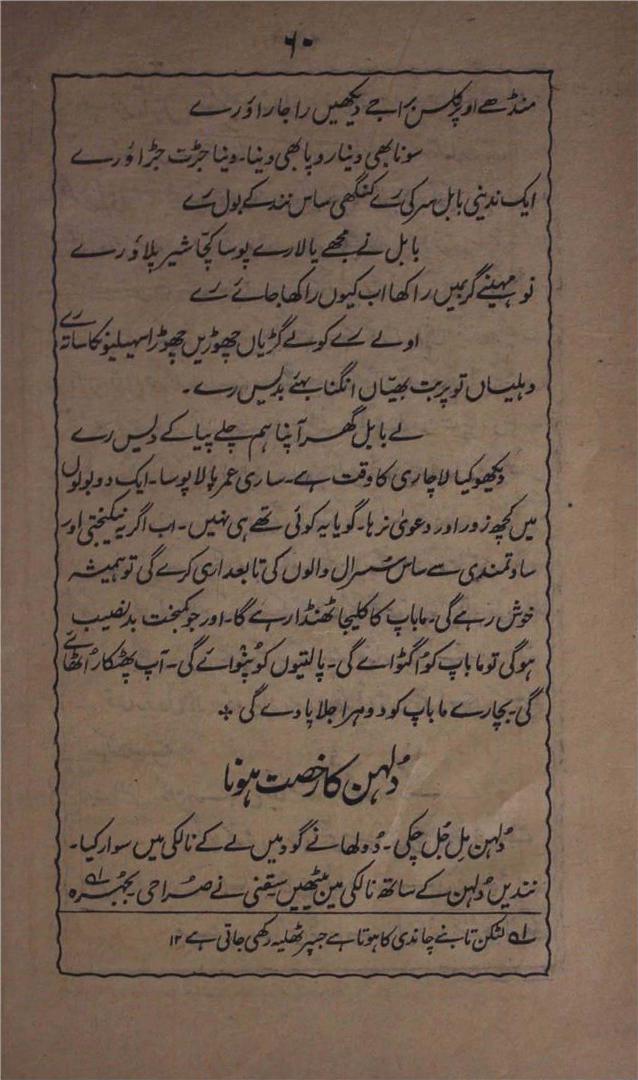 ۶۰
منڈھے اوپر کلس براجے دیکھیں راجا راؤ رے
سونا بھی دینا روپا بھی دینا۔ دینا جڑت جڑاؤ رے
ایک ندینی بابل سر کی رے کنگھی ساس نند کے بول رے
بابل نے مجھے پالا رے پوسا کچا شیر پلاؤ رے
نو مہینے گربھیں راکھا اب کیوں راکھا جائے رے
اولے رے کولے گڑیاں چھوڑیں چھوڑا سہیلیونکا ساتھ رے
دہلیاں تو پربت بھیّاں انگنا بھئے بدلیس رے۔
لے بابل گھر آپنا ہم چلے پیا کے دلیس رے
دیکھو کیا لاچاری کا وقت ہے۔ ساری عمر پالا پوسا۔ ایک دو بولوں
میں کچھ زور اور دعویٰ نرہا۔ گویا یہ کوئی تھے ہی نہیں۔ اب اگر یہ نیکبختی اور
سادتمندی سے ساس سُسرال والوں کی تابعداری کرے گی تو ہمیشہ
خوش رہے گی۔ ماباپ کا کلیجا ٹھنڈا رہے گا۔ اور جو کمبخت بدنصیب
ہوگی تو ماباپ کو اُگٹوائے گی۔ پالتیوں کو پُنوائے گی۔ آپ پھٹکار اُٹھائے
گی۔ بچارے ماباپ کو دوہرا جلاپا دے گی ٭
دُلہن کا رخصت ہونا
دُلہن مِل جُل چکی۔ دولھا نے گود میں لے کے نالکی میں سوار کیا۔
نندیں دُلہن کے ساتھ نالکی مین بیٹھیں سقنی نے صُراحی بجہرہ ؎۱
؎۱ لٹکن تانبے چاندی کا ہوتا ہے جسپر ٹھلیہ رکھی جاتی ہے ۱۲